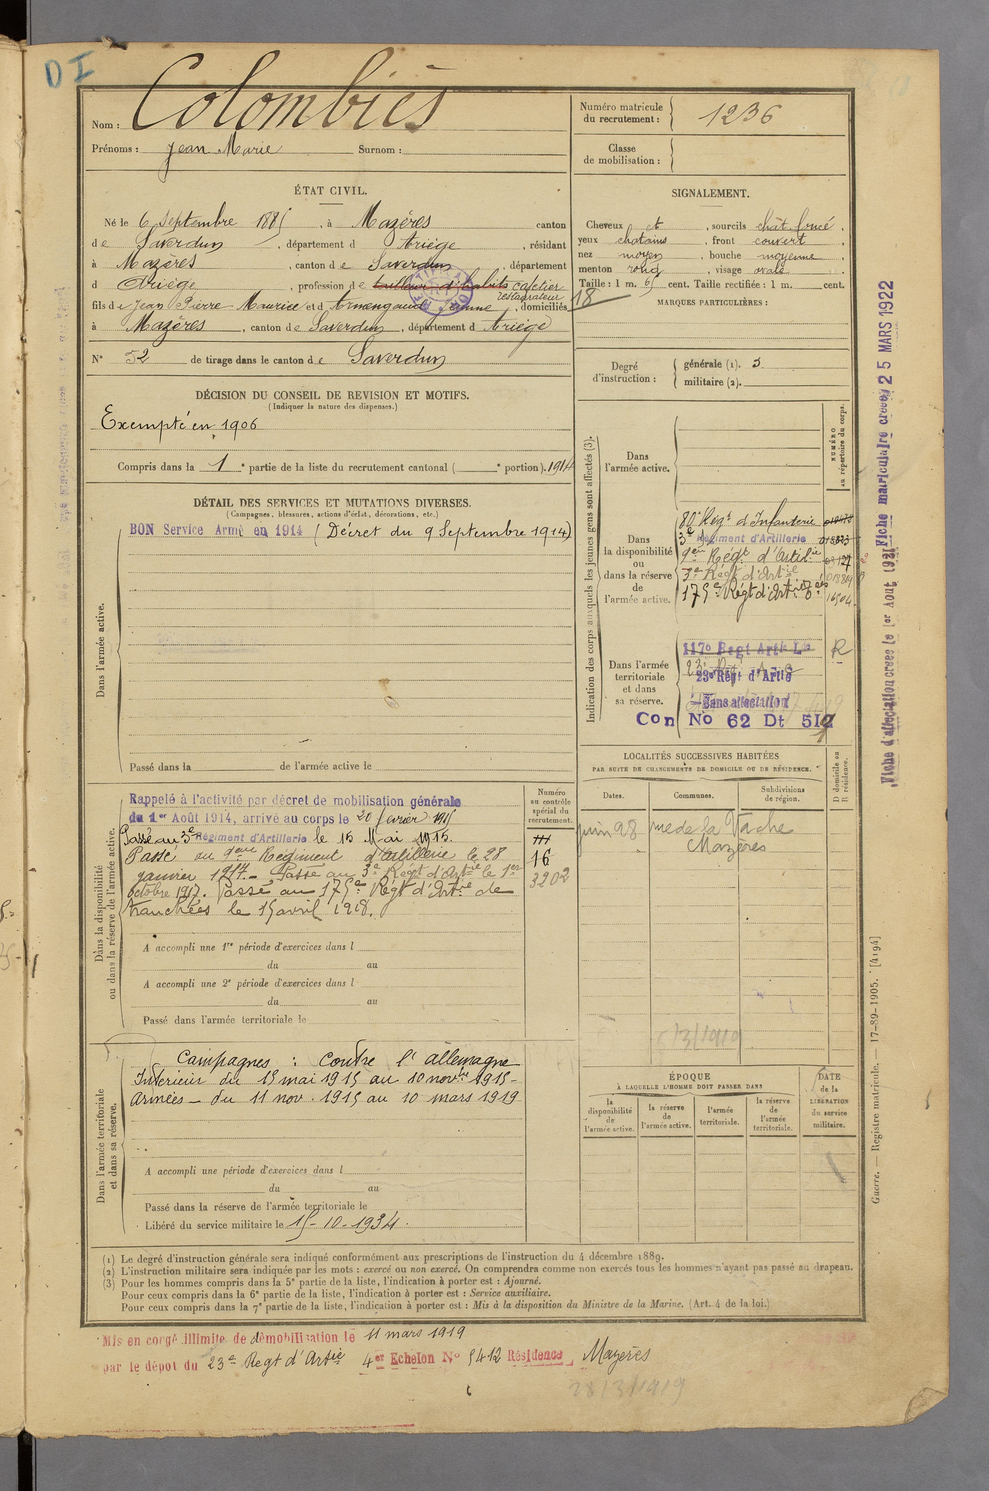 D I
Nom : Colombiès
Prénoms : Jean Marie Surnom :
Numéro matricule
du recrutement : 1236
Classe
de mobilisation :
ÉTAT CIVIL.
Né le 6 Septembre 1885, à Mazères canton
de Saverdun, département d Ariège, résidant
à Mazères, canton de Saverdun, département
d Ariège, profession de tailleur d'habits cafetier
restaurateur
fils de Jean Pierre Maurice et d Armengaud Jeanne, domiciliés
à Mazères, canton de Saverdun, département d Ariège
N° 52 de tirage dans le canton de Saverdun
SIGNALEMENT.
Cheveux et, sourcils chât. foncé,
yeux chatains, front couvert,
nez moyen, bouche moyenne,
menton rond, visage ovale
Taille : 1 m. 65 cent. Taille rectifiée : 1 m. cent.
18
MARQUES PARTICULIÈRES :
Degré
d'instruction :
générale (1). 3
militaire (2).
DÉCISION DU CONSEIL DE REVISION ET MOTIFS.
(Indiquer la nature des dispenses.)
Exempté en 1906
Compris dans la 1e partie de la liste du recrutement cantonal ( e portion). 1914
DÉTAIL DES SERVICES ET MUTATIONS DIVERSES.
(Campagnes, blessures, actions d'éclat, décorations, etc.)
BON Service Armé en 1914 (Décret du 9 Septembre 1914)
Dans l'armée active.
Passé dans la de l'armée active le
Indication des corps auxquels les jeunes gens sont affectés (3).
NUMÉRO
au répertoire du corps.
Dans
l'armée active.
Dans
la disponibilité
ou
dans la réserve
de
l'armée active.
80e Régt d'Infanterie
3e Régiment d'Artillerie
9eme Régt d'Artillie
3e Régt d'Artie
175e Régt d'Artie
Dans l'armée
territoriale
et dans
sa réserve.
117e Regt Artie Lde R
23e Régt d'Artie
Sans affectation
Con No 62 Dt 519
Fiche d'affectation créée le 1er Aout 1921
Fiche matriculaire créée 25 MARS 1922
LOCALITÉS SUCCESSIVES HABITÉES
PAR SUITE DE CHANGEMENTS DE DOMICILE OU DE RÉSIDENCE.
Dates. Communes. Subdivisions
de région. D domicile ou
R résidence.
juin 28 rue de la Vache
Mazères
Dans la disponibilité
ou dans la réserve de l'armée active.
Numéro
au contrôle
spécial du
recrutement.
Rappelé à l'activité par décret de mobilisation générale
du 1er Août 1914, arrivé au corps le 20 février 1915
Passé au 3e Régiment d'Artillerie le 15 Mai 1915.
Passé au 9eme Régiment d'artillerie le 28
janvier 1917. - Passé au 3e Régt d'Artie le 1er
octobre 1917. Passé au 175e Régt d'Artie de
tranchées le 15 avril 1918.
16
3202
A accompli une 1re période d'exercices dans l
du au
A accompli une 2e période d'exercices dans l
du au
Passé dans l'armée territoriale le
Dans l'armée territoriale
et dans sa réserve.
Campagnes : Contre l'allemagne
Intérieur du 15 mai 1915 au 10 novbre 1915 -
Armées - du 11 nov. 1915 au 10 mars 1919
A accompli une période d'exercices dans l
du au
Passé dans la réserve de l'armée territoriale le
Libéré du service militaire le 15-10-1934.
ÉPOQUE
À LAQUELLE L'HOMME DOIT PASSER DANS
la
disponibilité
de
l'armée active.
la réserve
de
l'armée active.
l'armée
territoriale.
la réserve
de
l'armée
territoriale.
DATE
de la
LIBÉRATION
du service
militaire.
Guerre. — Registre matricule. — 17-89-1905. [4194]
(1) Le degré d'instruction générale sera indiqué conformément aux prescriptions de l'instruction du 4 décembre 1889.
(2) L'instruction militaire sera indiquée par les mots : exercé ou non exercé. On comprendra comme non exercés tous les hommes n'ayant pas passé au drapeau.
(3) Pour les hommes compris dans la 5e partie de la liste, l'indication à porter est : Ajourné.
Pour ceux compris dans la 6e partie de la liste, l'indication à porter est : Service auxiliaire.
Pour ceux compris dans la 7e partie de la liste, l'indication à porter est : Mis à la disposition du Ministre de la Marine. (Art. 4 de la loi.)
Mis en congé illimité de démobilisation le 11 mars 1919
par le dépot du 23e Regt d'Artie 4er Echelon No 5412 Résidence Mazères
28/3/1919